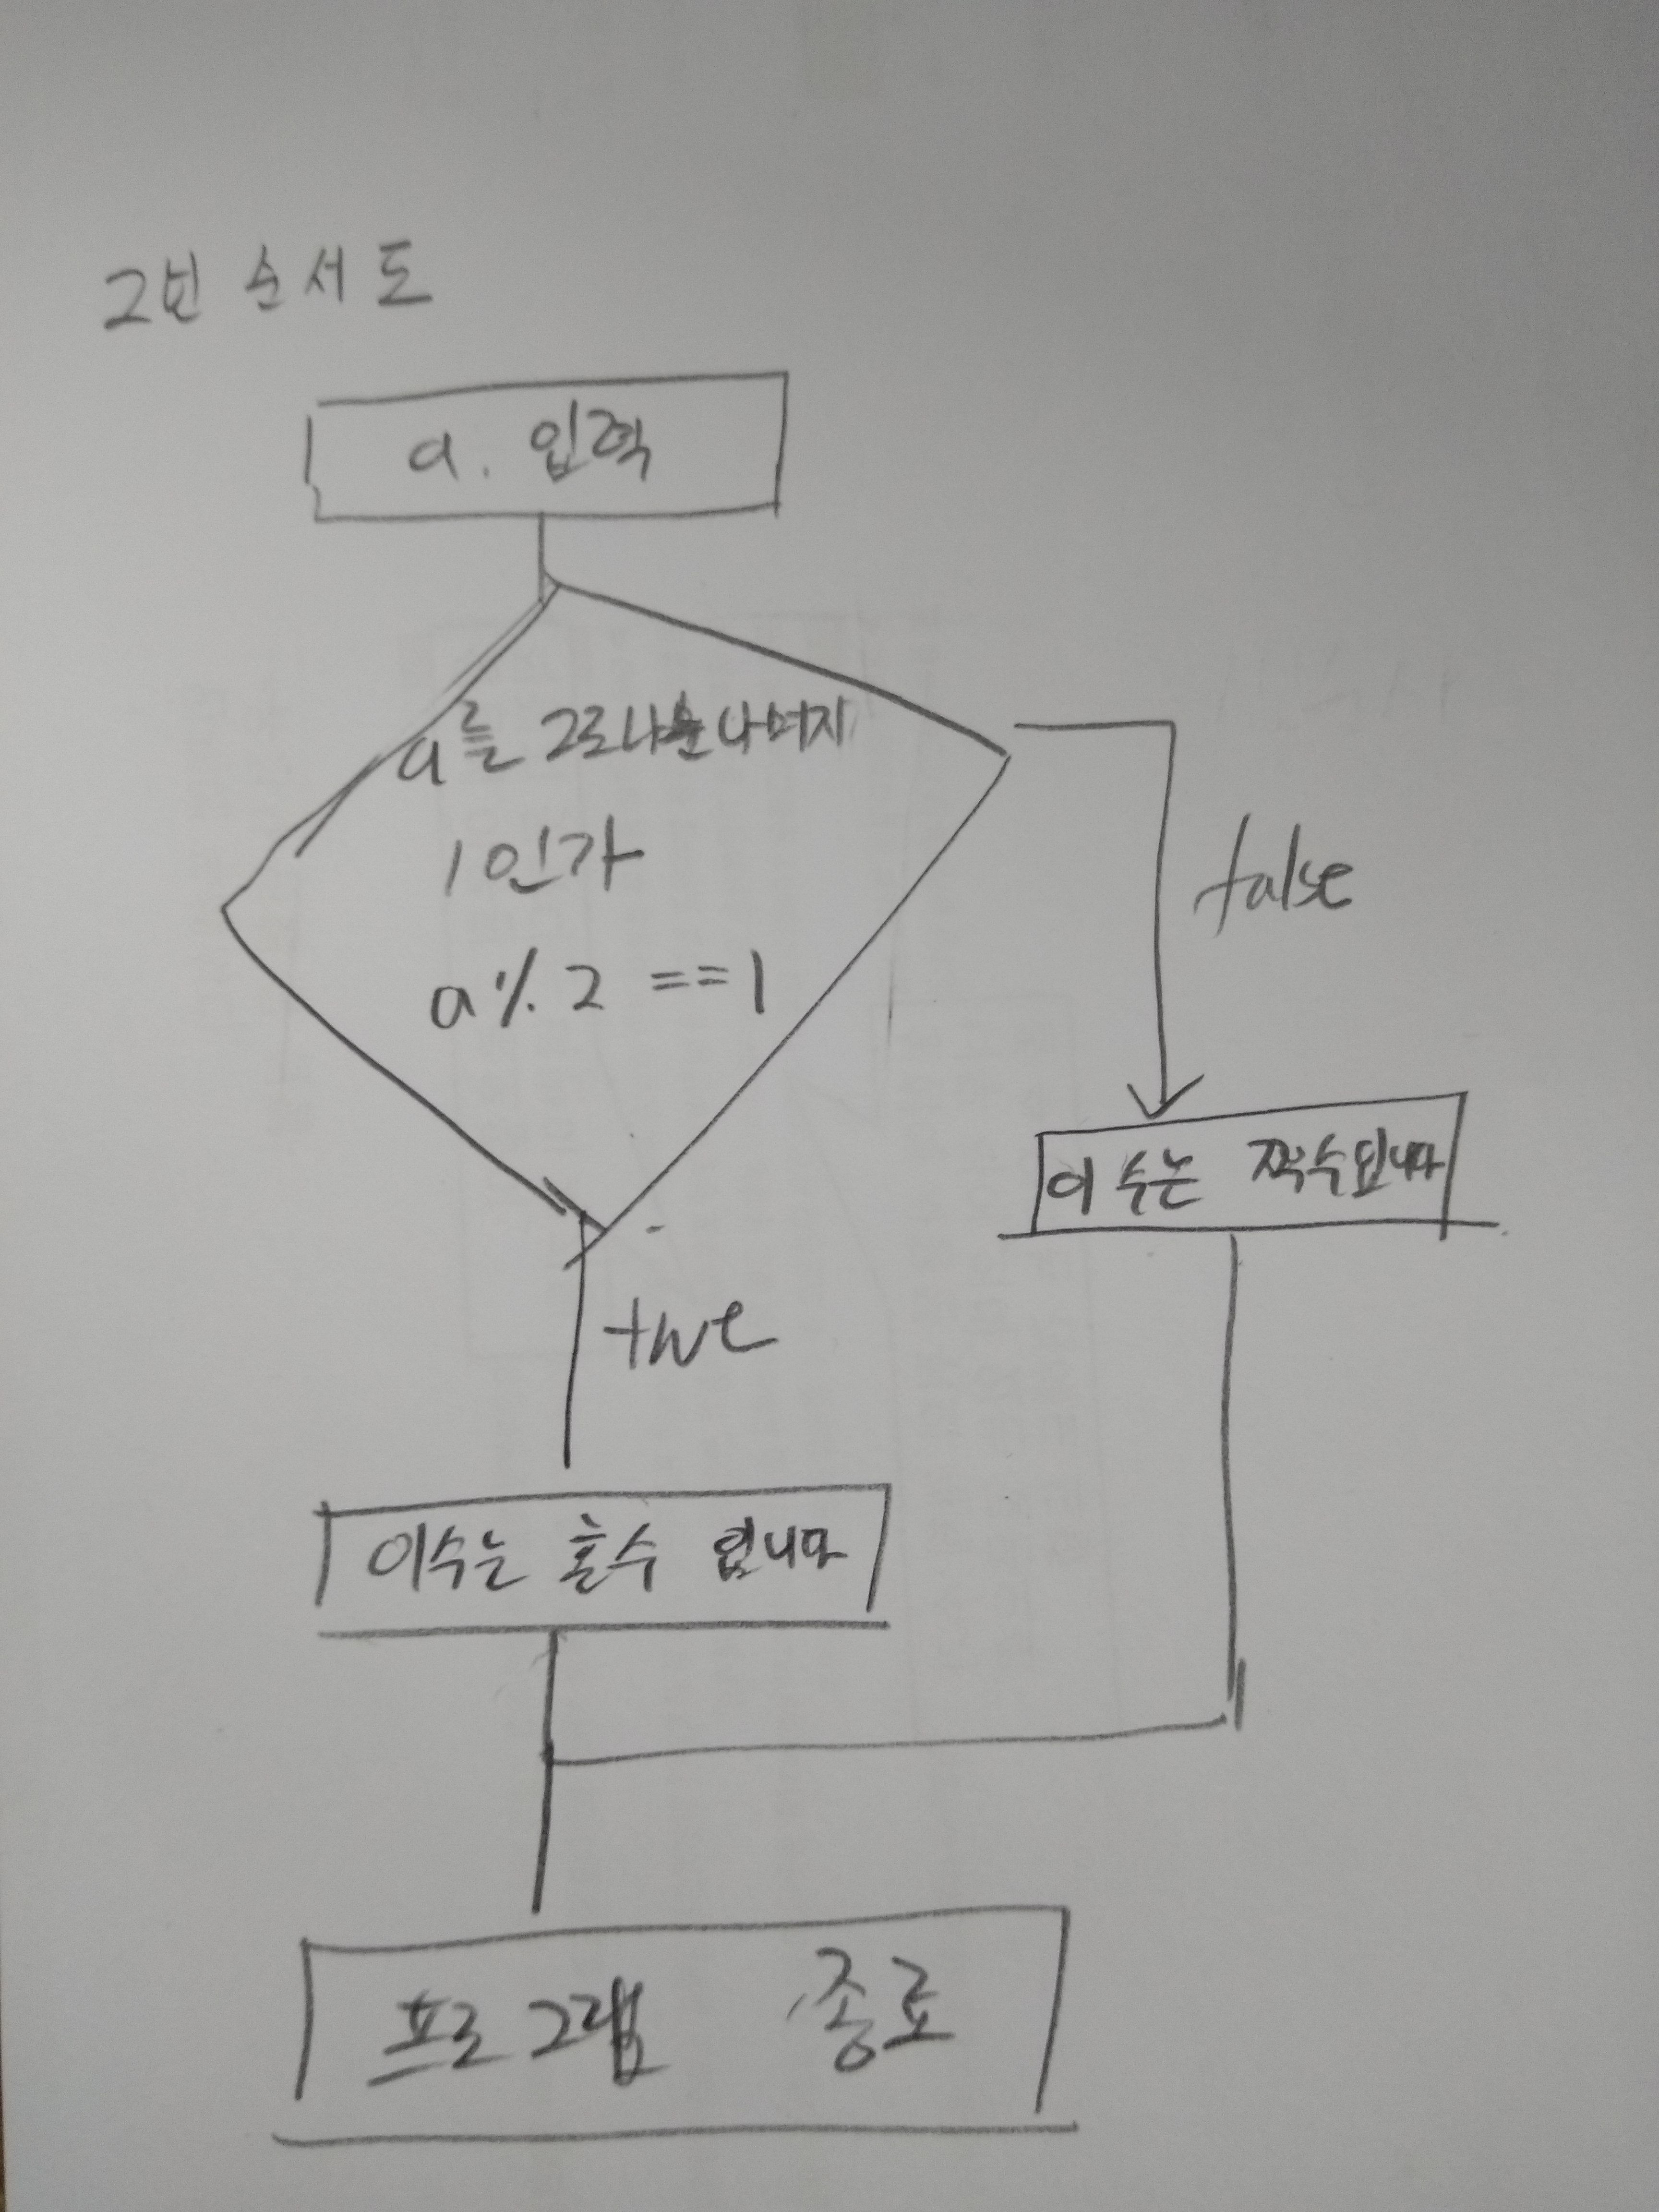 2번 순서도
a. 입력
a를 2로 나눈 나머지
1인가
a % 2 == 1
false
이 수는 짝수입니다
true
이수는 홀수 입니다
프로그램 종료